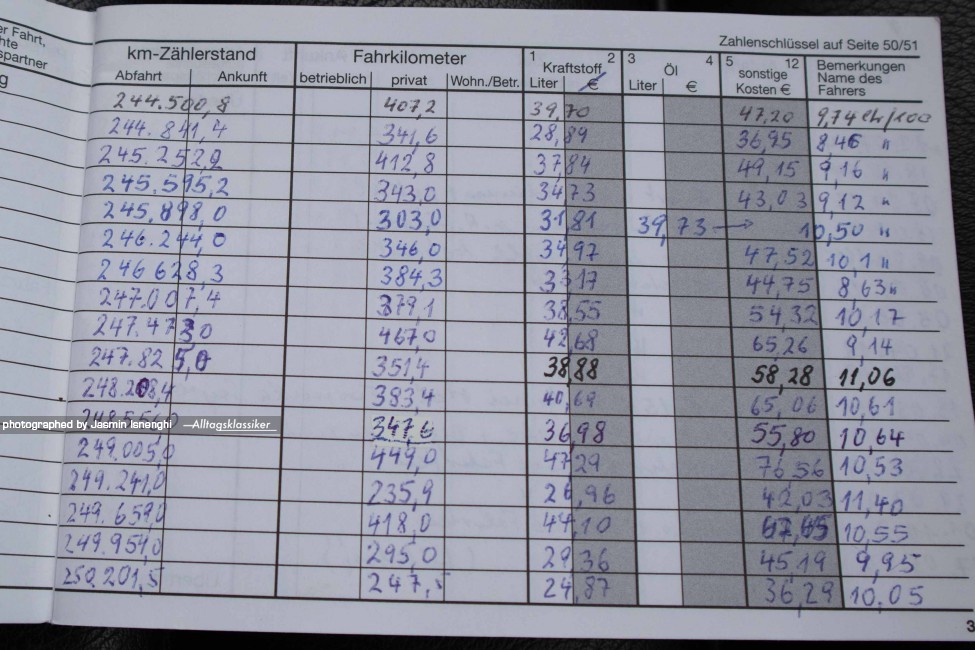 er Fahrt,
chte
spartner
g
Zahlenschlüssel auf Seite 50/51
km-Zählerstand Fahrkilometer 1 Kraftstoff 2 3 Öl 4 5 sonstige 12 Bemerkungen
Abfahrt Ankunft betrieblich privat Wohn./Betr. Liter € Liter € Kosten € Name des Fahrers
244.500,8 407,2 39,70 47,20
244.841,4 341,6 28,89 36,95 8,46 "
245.252,9 412,8 37,84 49,15 9,16 "
245.595,2 343,0 34,73 43,03 9,12 "
245.898,0 303,0 31,81 39,73 → 10,50 "
246.244,0 346,0 34,97 47,52 10,1 "
246628,3 384,3 3317 44,75 8,63 "
247.007,4 379,1 38,55 54,32 10,17
247.4730 467,0 42,68 65,26 9,14
247.825,0 351,4 38,88 58,28 11,06
248.208,4 383,4 40,69 65,06 10,61
347,6 36,98 55,80 10,64
photographed by Jasmin Isnenghi —Alltagsklassiker
249.005,0 449,0 47,29 76,56 10,53
249.241,0 235,9 26,96 42,03 11,40
249.659,0 418,0 44,10 10,55
249.954,0 295,0 29,36 45,19 9,95
250.201,5 247,5 24,87 36,29 10,05
3